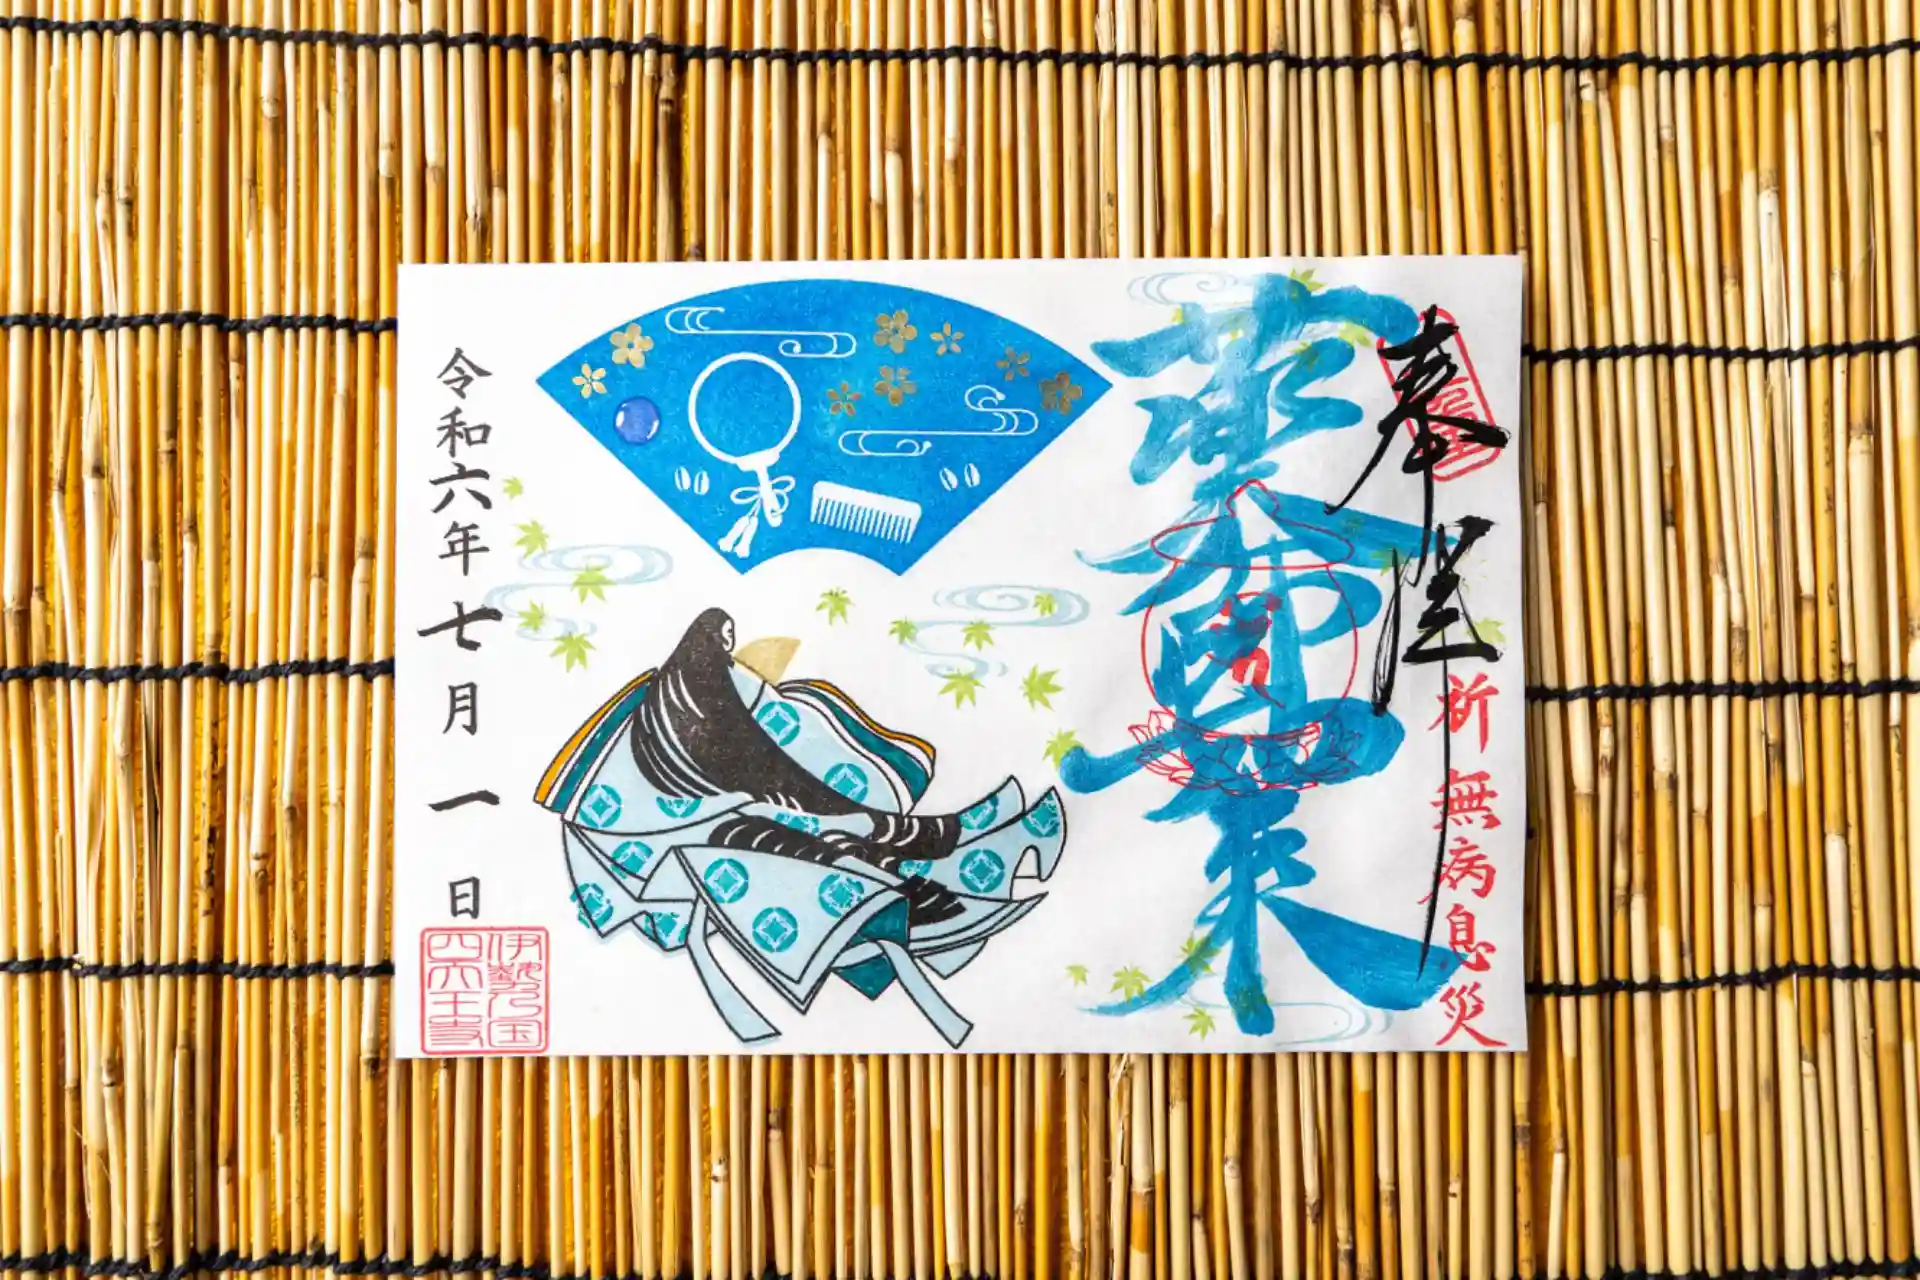 奉拝
祈無病息災
薬師如来
令和六年七月一日
伊勢乃国
四天王寺